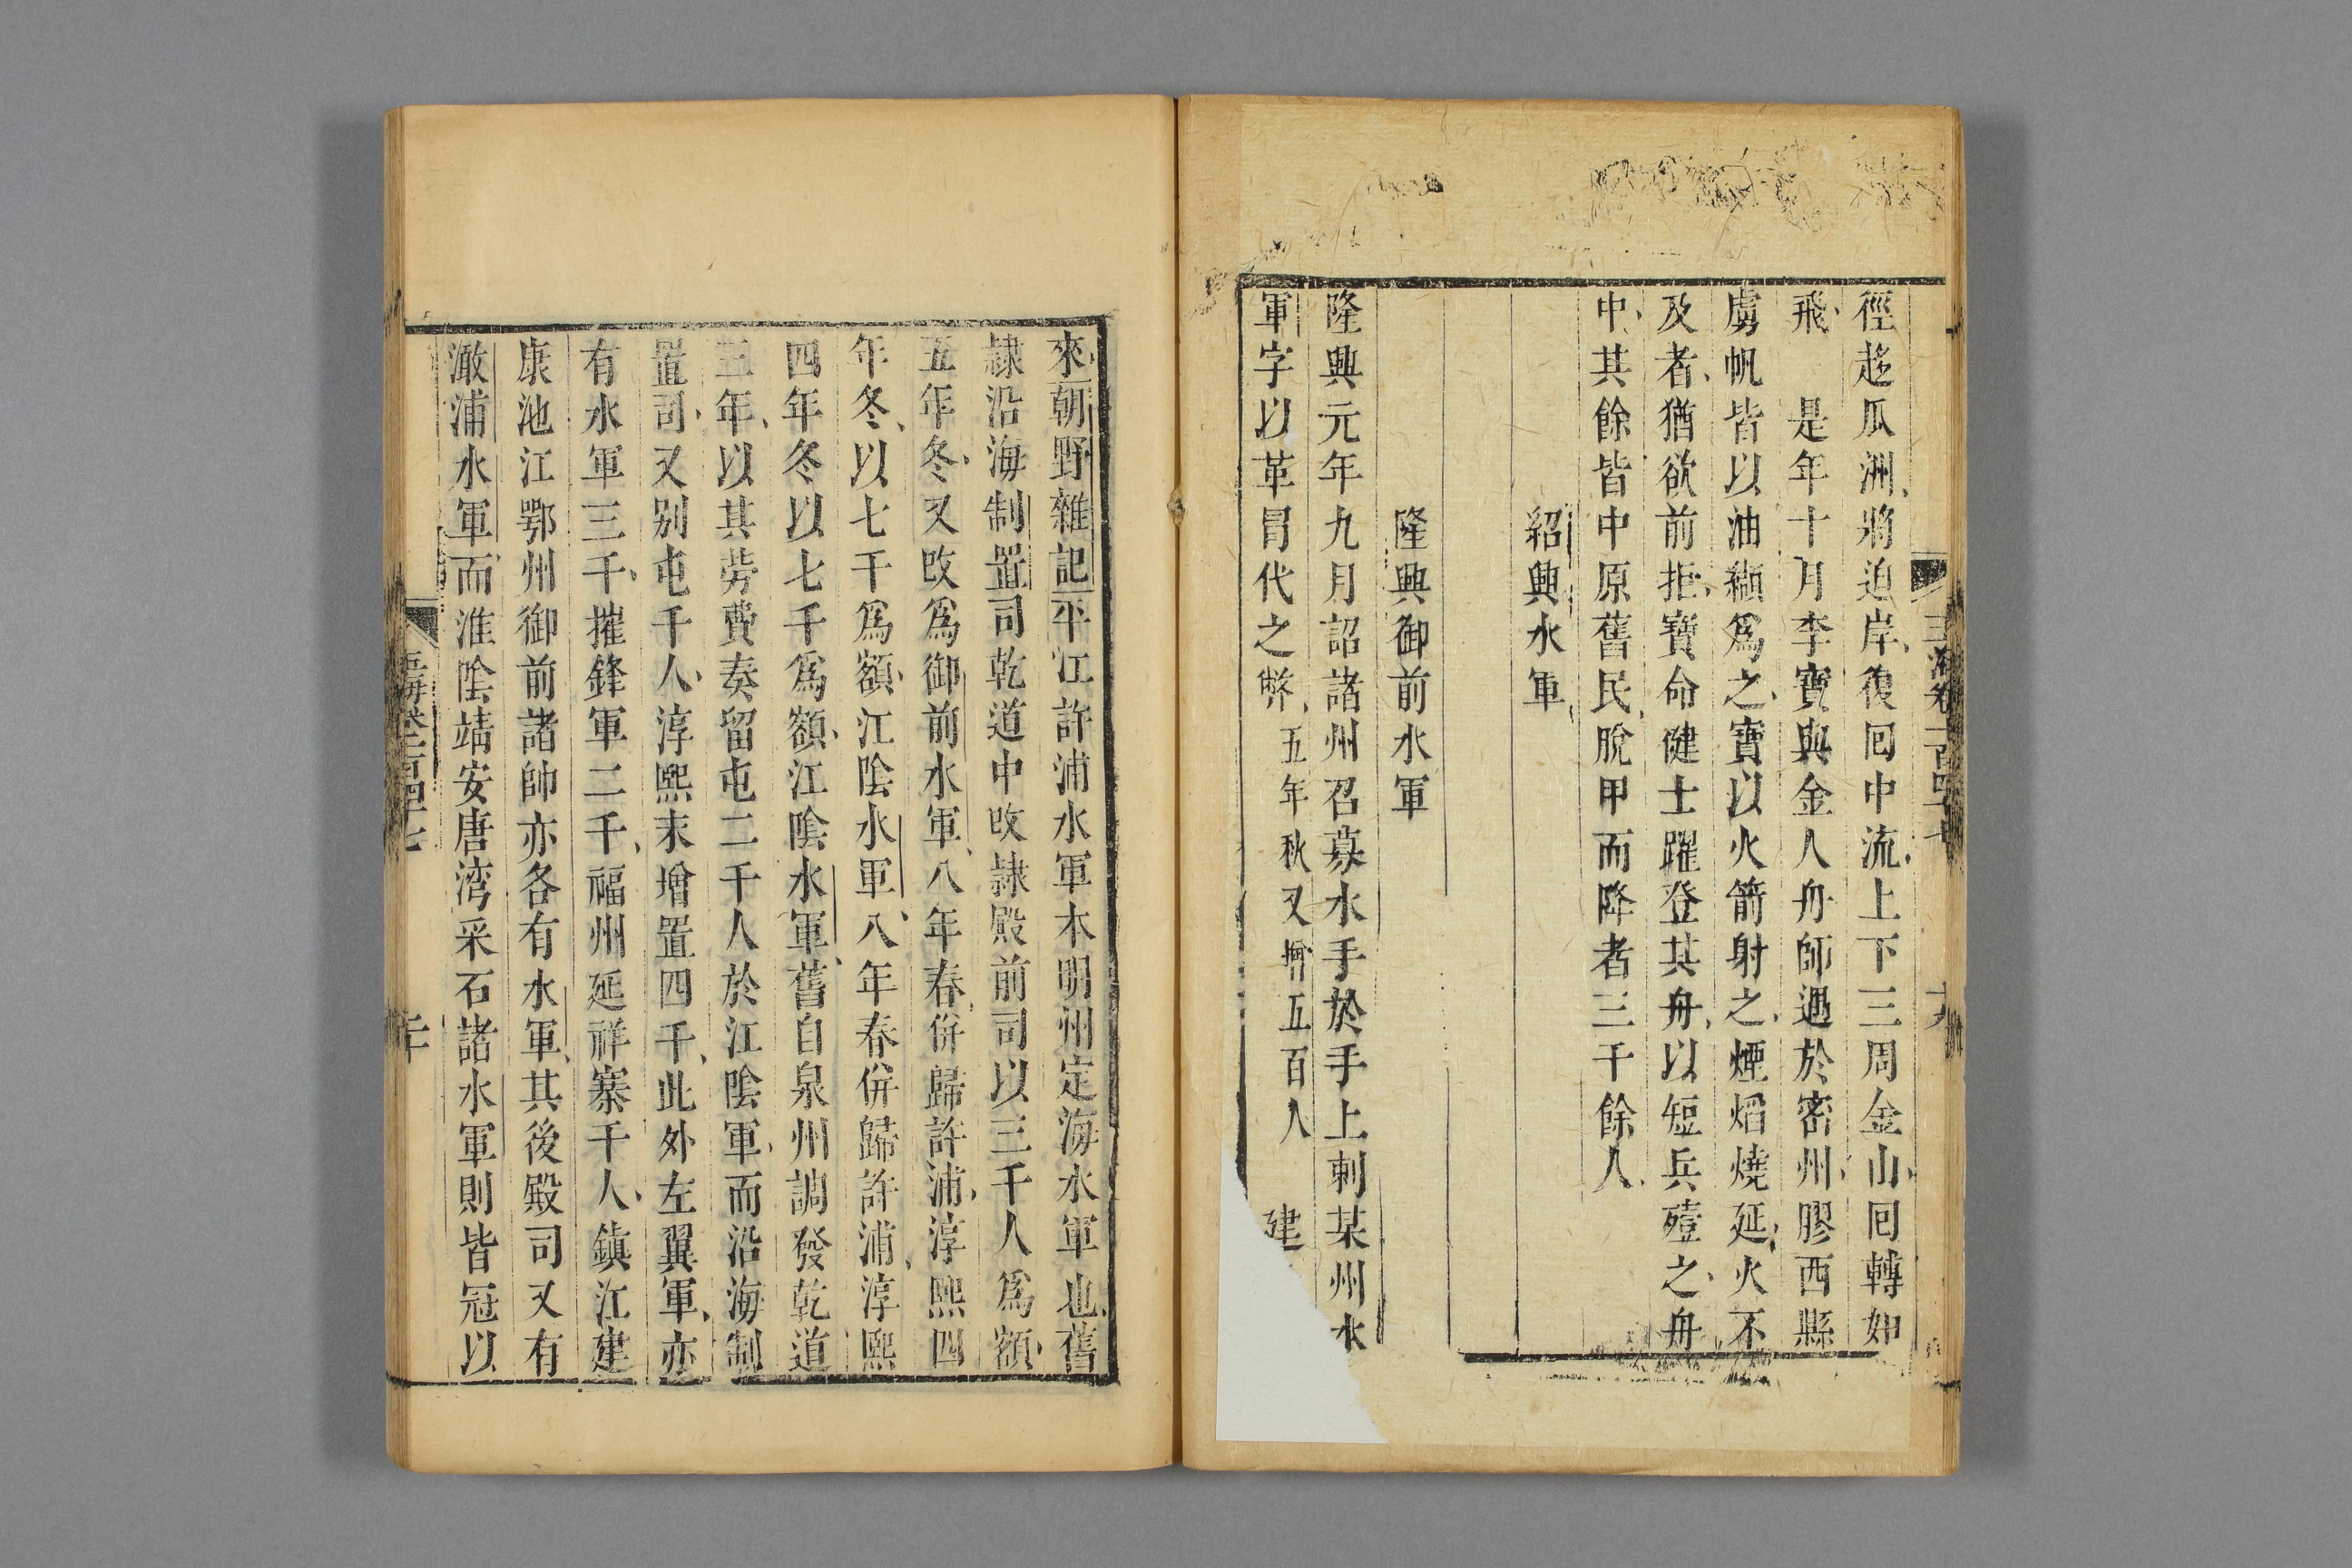 玉海卷一百四十七
十九
徑趍瓜洲將迫岸復囘中流上下三周金山囘轉如
飛　是年十月李寶與金人舟師遇於密州膠西縣
虜帆皆以油纈爲之寶以火箭射之煙焰燒延火不
及者猶欲前拒寶命健士躍登其舟以短兵殪之舟
中其餘皆中原舊民脫甲而降者三千餘人
紹興水軍
隆興御前水軍
隆興元年九月詔諸州召募水手於手上刺某州水
軍字以革冒代之弊五年秋又增五百人　建
來朝野雜記平江許浦水軍本明州定海水軍也舊
隷沿海制置司乾道中改隷殿前司以三千人爲額
五年冬又改爲御前水軍八年春併歸許浦淳熙四
年冬以七千爲額江陰水軍八年春併歸許浦淳熙
四年冬以七千爲額江陰水軍舊自泉州調發乾道
三年以其勞費奏留屯二千人於江陰軍而沿海制
置司又别屯千人淳熙末增置四千此外左翼軍亦
有水軍三千摧鋒軍二千福州延祥寨千人鎮江建
康池江鄂州御前諸帥亦各有水軍其後殿司又有
澉浦水軍而淮陰靖安唐湾采石諸水軍則皆冠以
玉海卷一百四十七
二十